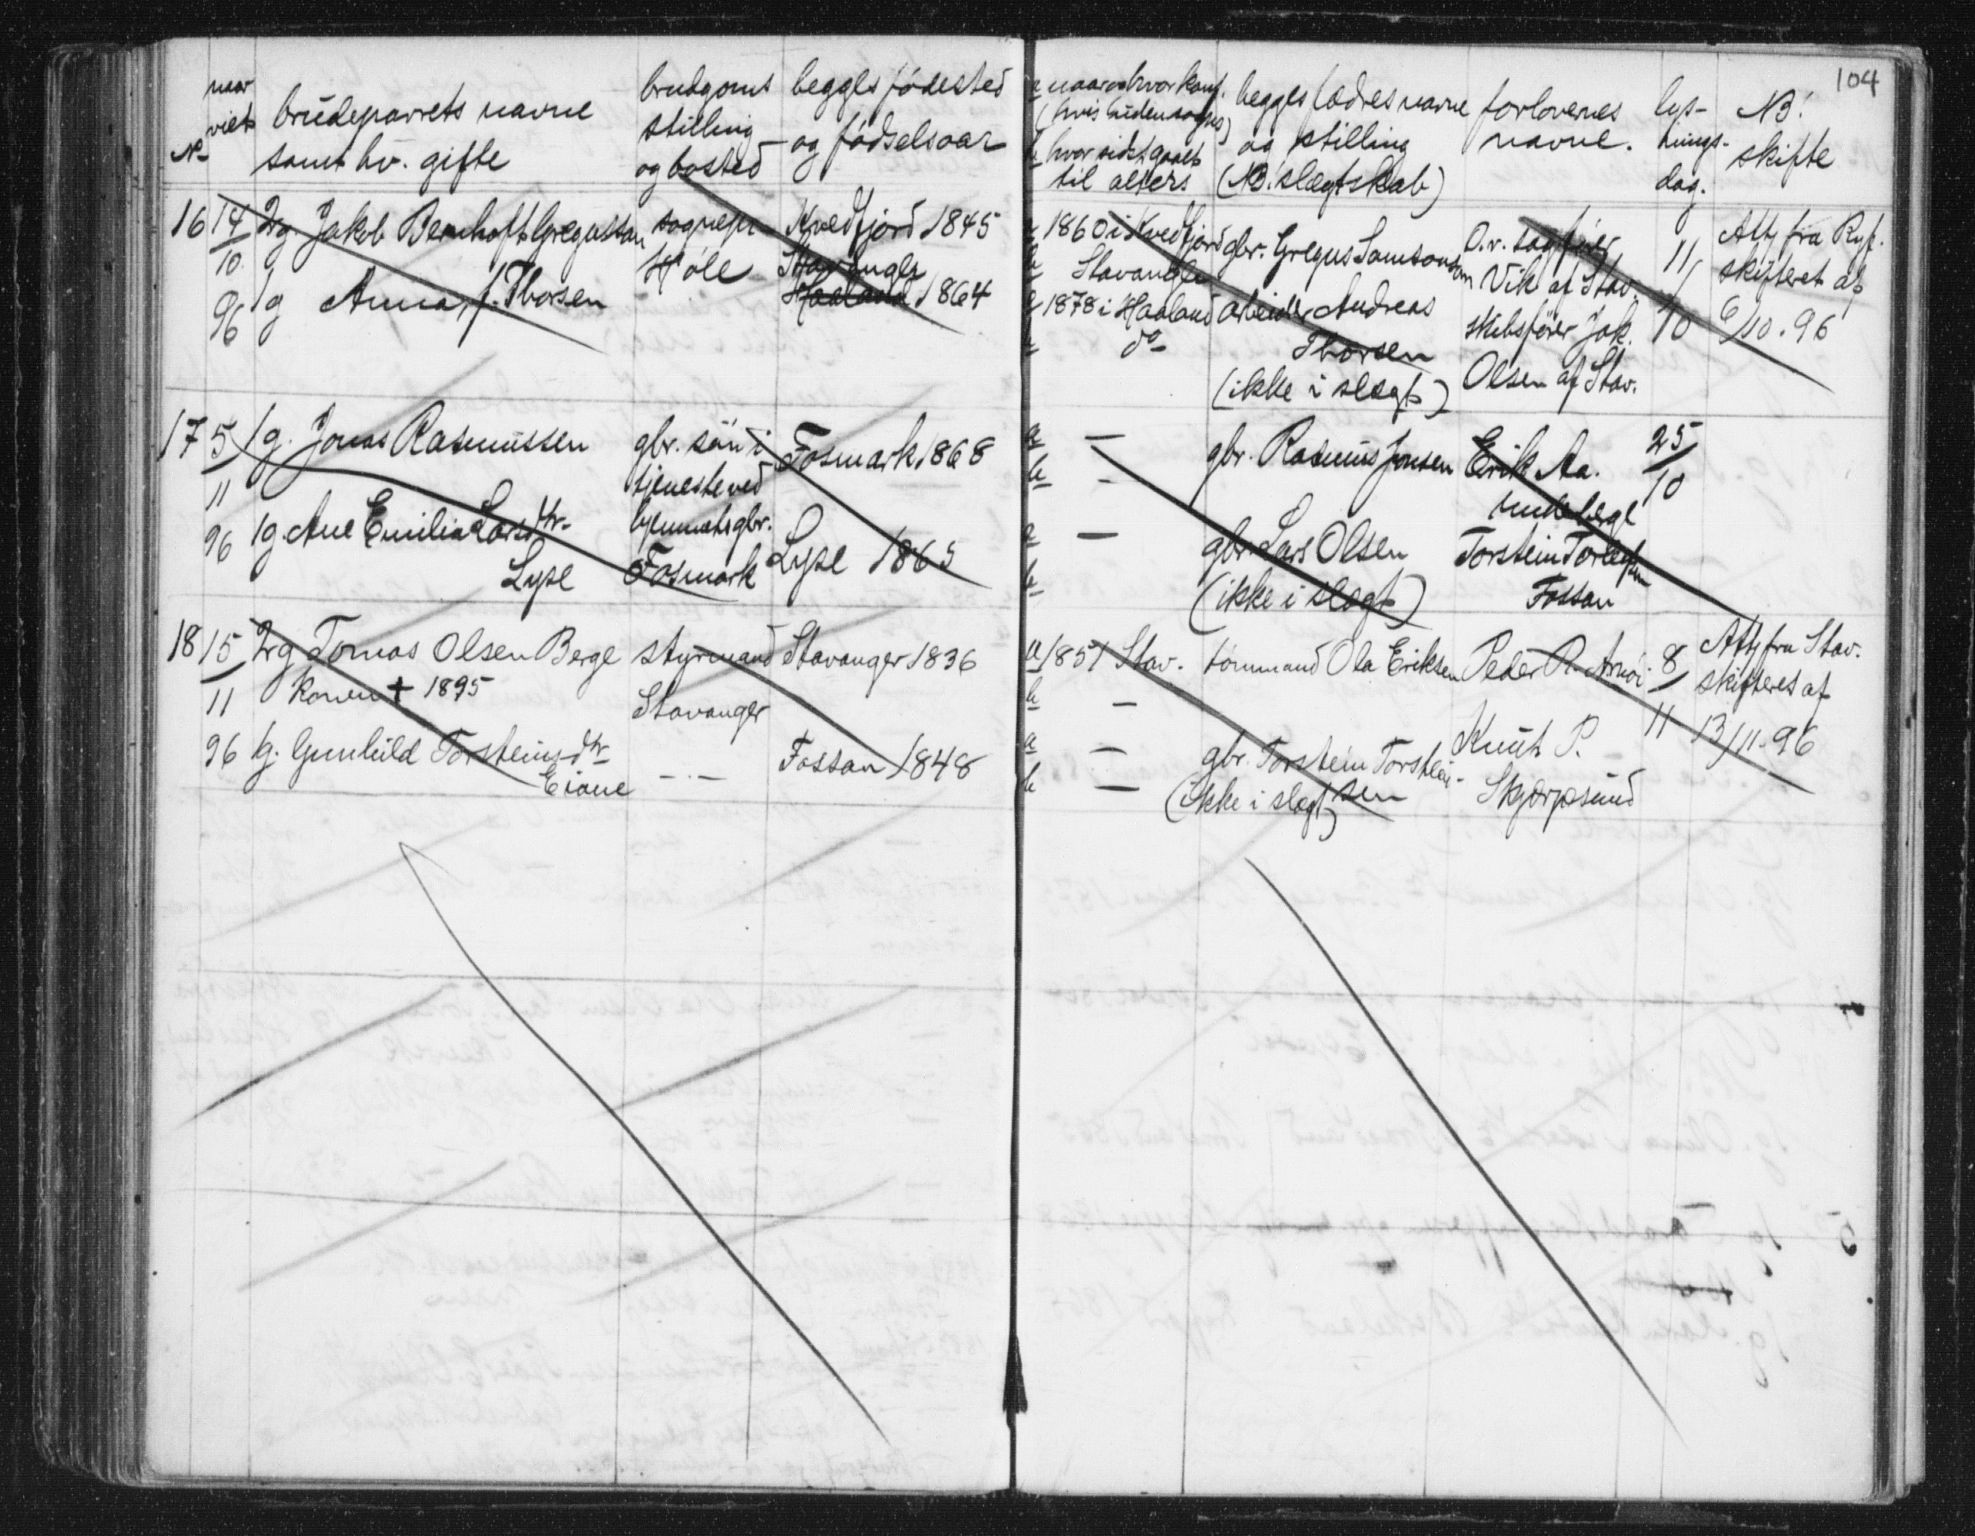 104
naar viet
No
brudeparrets navne
samt hv. gifte
brudgoms
stilling
og bosted
begges fødested
og fødselsaar
a naar og hvor konf.
(hvis hudensognes)
b hvor sidst gaaet
til alters
begges fædres navne
og stilling
(NB. slegtskab)
forlovernes
navne.
lys-
nings-
dag.
NB!
skifte
16 14/10 96
2g Jakob Bernhoft Gregussen
1g Anna f. Thorsen
sognepr.
Høle
Kvedfjord 1845
Stavanger
Haaland 1864
a 1860 i Kvedfjord
b Stavanger
a 1878 i Haaland
b do
gbr. Gregus Samsonsen
arbeider Andreas
Thorsen
(ikke i slegt)
O.r. sagfører
Vik af Stav.
skibsfører Jak.
Olsen af Stav.
11/10
Att. fra Ryf.
skifteret af
6/10.96
17 5/11 96
1g. Jonas Rasmussen
1g. Ane Emilia Larsdtr.
Lyse
gbr. søn i
tjeneste ved
hjemmets gbr.
Fosmark
Fosmark 1868
Lyse 1865
a —
b -
a —
b
gbr. Rasmus Jonsen
gbr. Lars Olsen
(ikke i slegt)
Erik Aa.
Torstein
Fossan
25/10
18 15/11 96
2g Tomas Olsen Berge
konen † 1895
1g. Gunhild Torsteinsdtr.
Eiane
styrmand
Stavanger
- · -
Stavanger 1836
Fossan 1848
a 1851 Stav.
b —
a —
b —
tømmand Ola Eriksen
gbr. Torstein Torstein-
sen
(ikke i slegt)
Peder R.
Knut P.
Skjørpsund
8/11
Att. fra Stav.
skifteret af
13/11-96